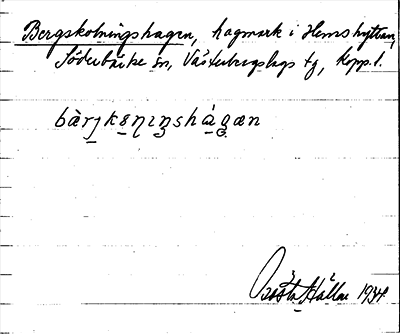 Bergskolningshagen, hagmark i Hemshyttan,
Söderbärke sn, Västerbergslags tg, Kopp. l.
bàrjkȣnıŋshágæn
Gösta Hållar 1934